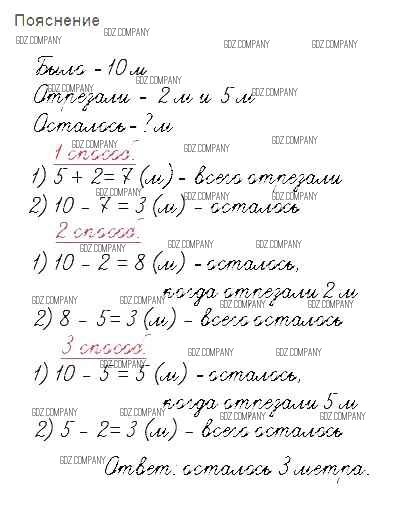 Пояснение
GDZ.COMPANY
GDZ.COMPANY GDZ.COMPANY GDZ.COMPANY
Было - 10 м
GDZ.COMPANY
GDZ.COMPANY GDZ.COMPANY
Отрезали - 2 м и 5 м
Осталось - ? м
GDZ.COMPANY GDZ.COMPANY GDZ.COMPANY
1 способ.
1) 5 + 2 = 7 (м) - всего отрезали
GDZ.COMPANY GDZ.COMPANY GDZ.COMPANY
2) 10 - 7 = 3 (м) - осталось
2 способ.
GDZ.COMPANY GDZ.COMPANY GDZ.COMPANY
1) 10 - 2 = 8 (м) - осталось,
когда отрезали 2 м
GDZ.COMPANY GDZ.COMPANY GDZ.COMPANY GDZ.COMPANY
2) 8 - 5 = 3 (м) - всего осталось
3 способ.
GDZ.COMPANY GDZ.COMPANY GDZ.COMPANY
1) 10 - 5 = 5 (м) - осталось,
когда отрезали 5 м
GDZ.COMPANY GDZ.COMPANY GDZ.COMPANY GDZ.COMPANY
2) 5 - 2 = 3 (м) - всего осталось
GDZ.COMPANY
Ответ: осталось 3 метра.